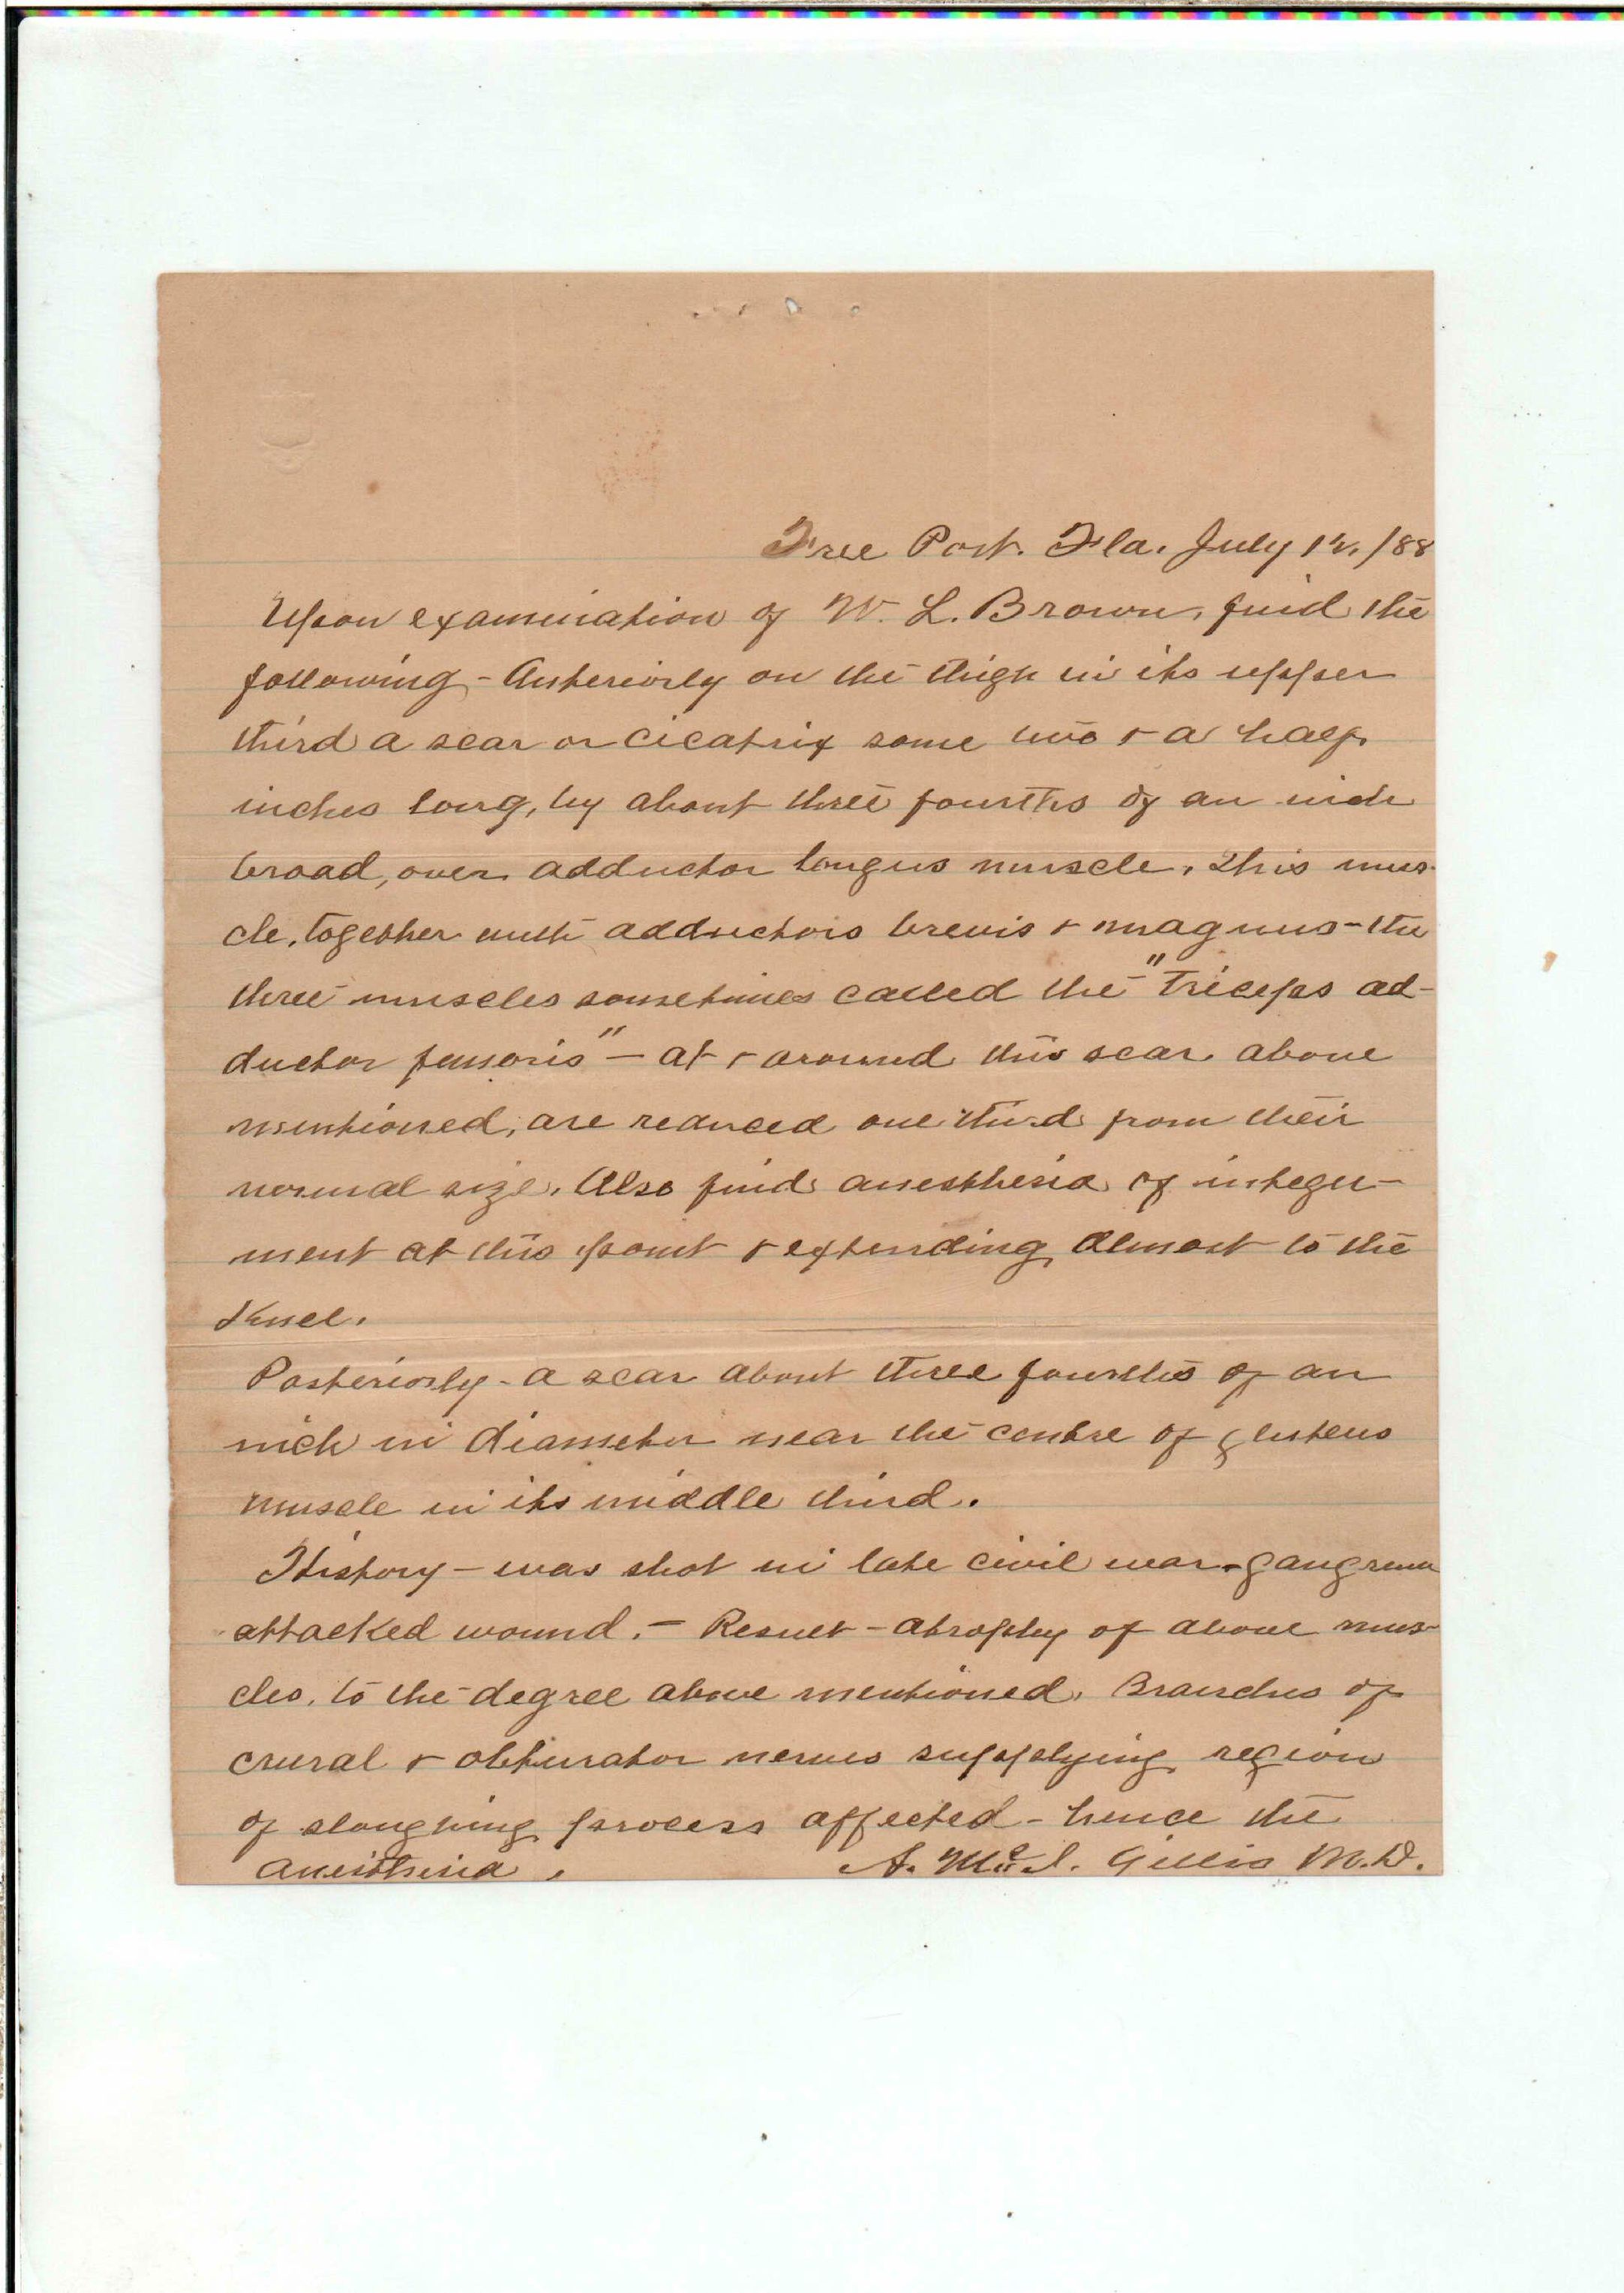 Free Port. Fla. July 12, /88
Upon examination of W. L. Brown, find the
following - Anteriorly on the thigh in its upper
third a scar or cicatrix some two & a half
inches long, by about three fourths of an inch
broad, over adductor longus muscle. This mus-
cle, together with adductors brevis & magnus - the
three muscles sometimes called the "Triceps ad-
ductor femoris" - at & around this scar above
mentioned, are reduced one third from their
normal size. Also find anesthesia of integu-
ment at this point & extending almost to the
Knee.
Posteriorly - a scar about three fourths of an
inch in diameter near the centre of gluteus
muscle in its middle third.
History - was shot in late civil war - gangrene
attacked wound. - Result - atrophy of above mus-
cles, to the degree above mentioned. Branches of
crural & obturator nerves supplying region
of sloughing process affected - hence the
anesthesia.
A. Mc.I. Gillis M.D.